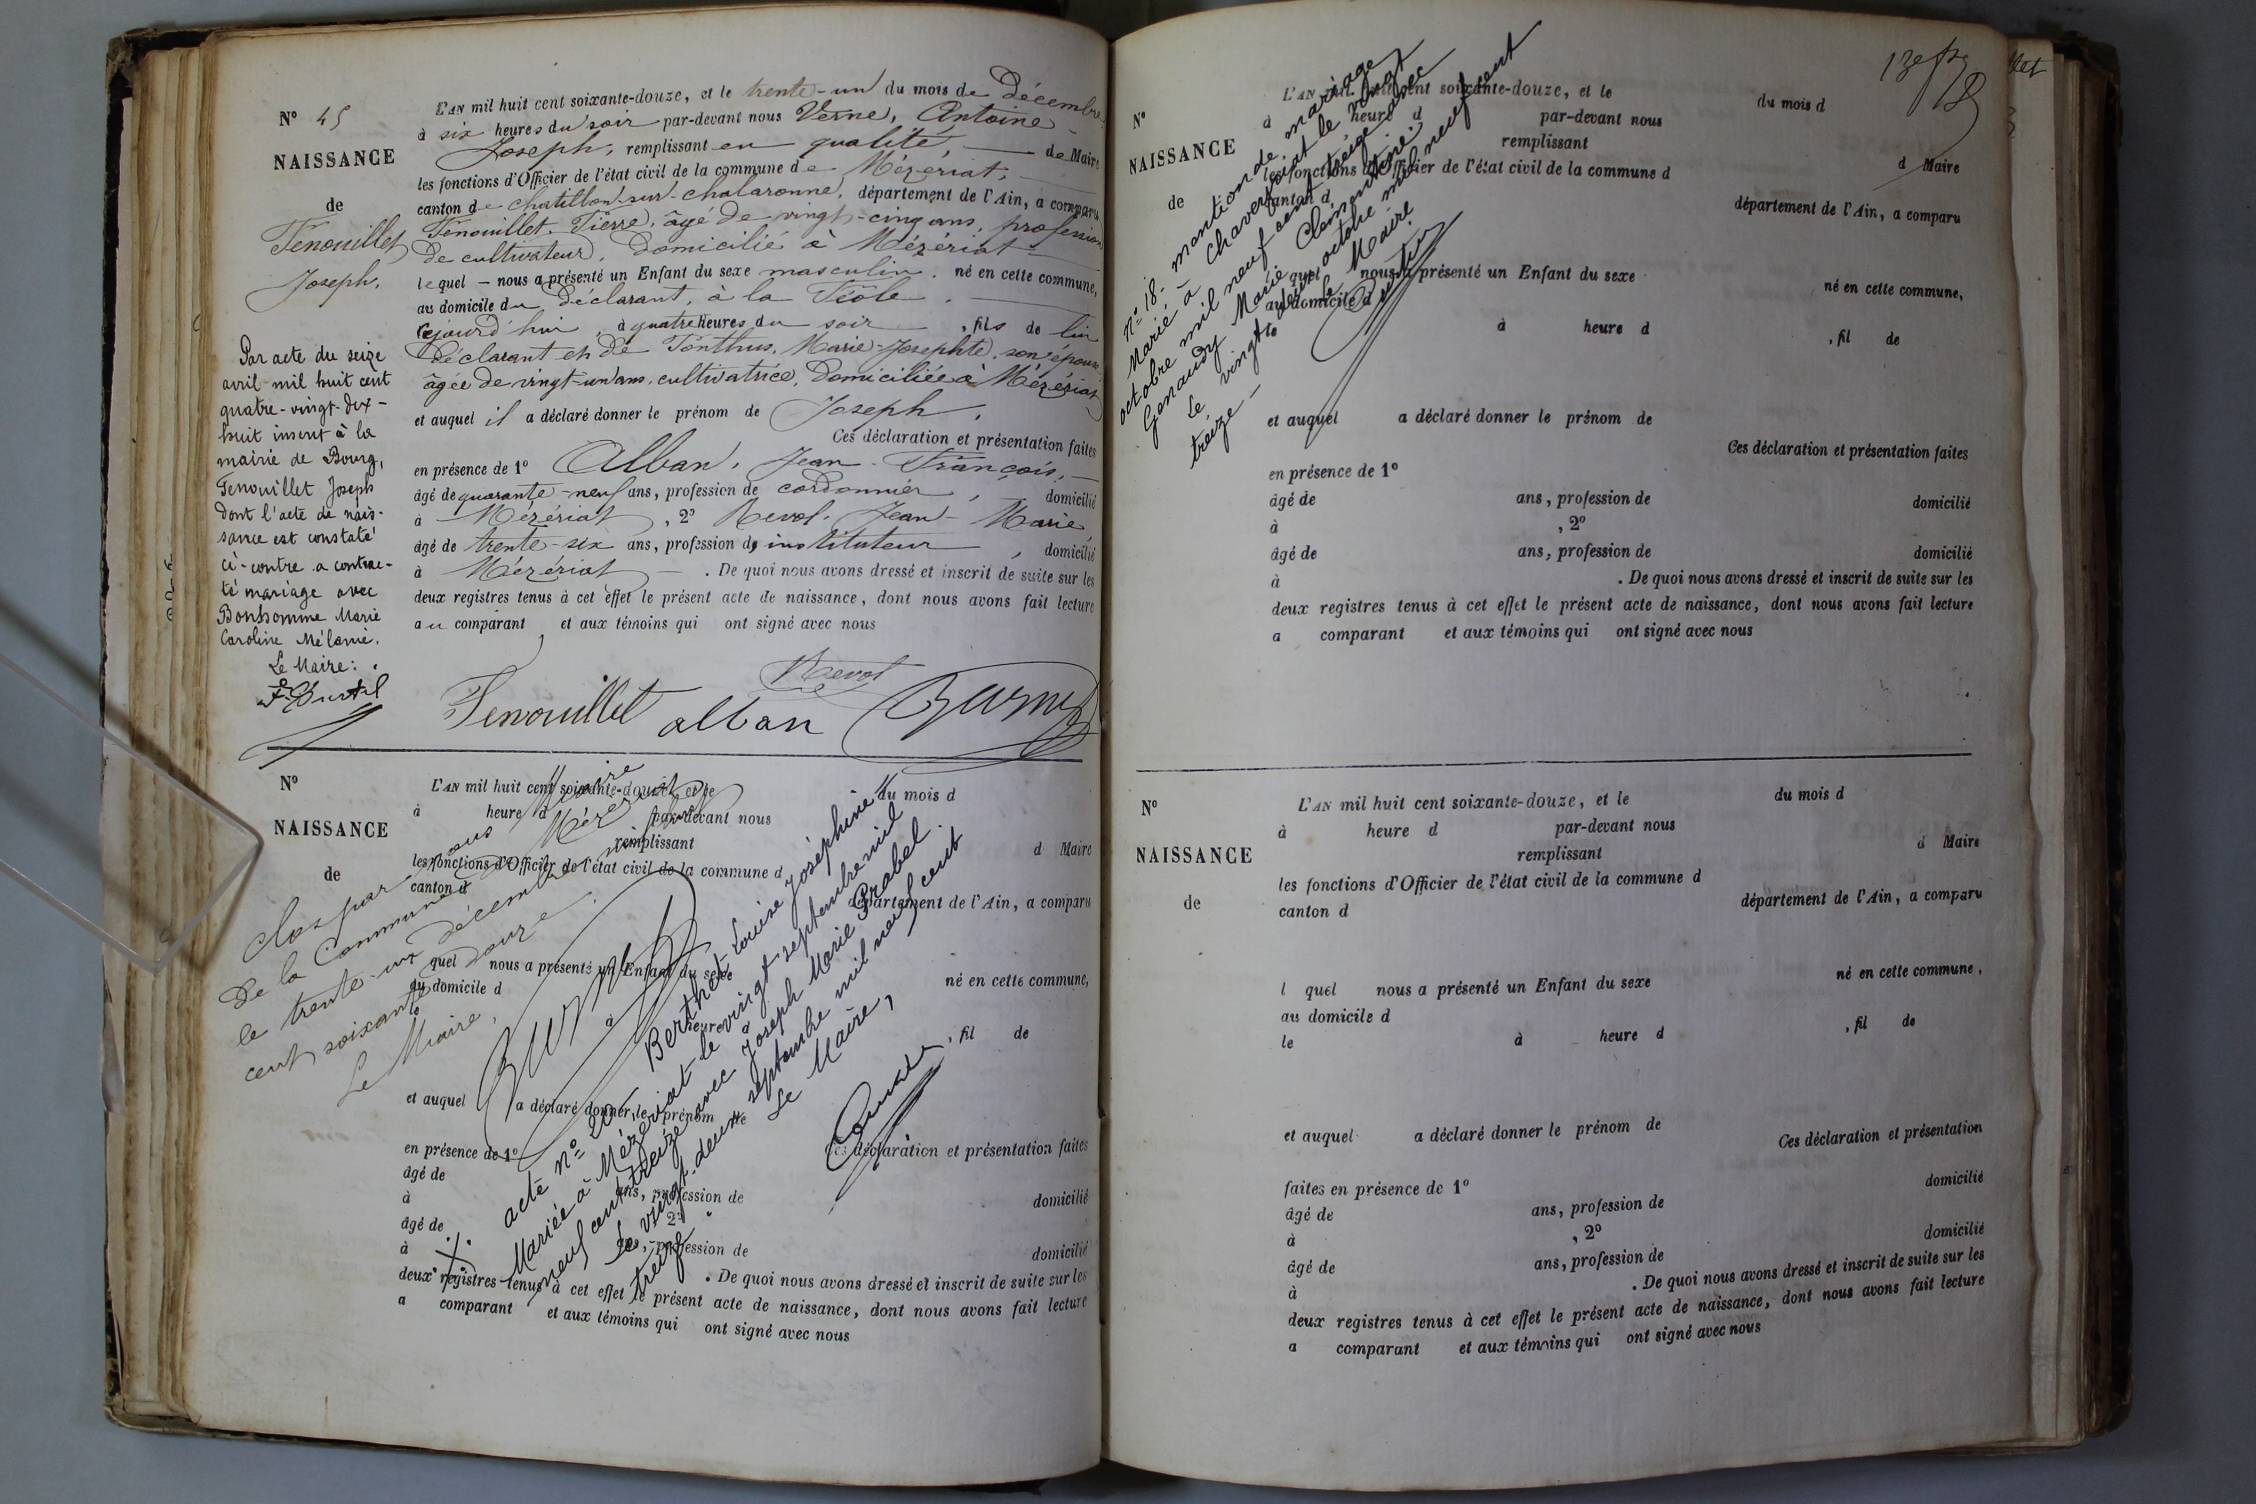 N° 45
NAISSANCE
de
Fenouillet
Joseph.
L'AN mil huit cent soixante-douze, et le trente-un du mois de Décembre
à six heures du soir par-devant nous Verne, Antoine
Joseph, remplissant en qualité de Maire
les fonctions d'Officier de l'état civil de la commune de Mézériat,
canton de Chatillon-sur-Chalaronne, département de l'Ain, a comparu
Fenouillet, Pierre, âgé de vingt-cinq ans, profession
de cultivateur, domicilié à Mézériat
lequel nous a présenté un Enfant du sexe masculin, né en cette commune,
au domicile du déclarant, à la
cejourd'hui, à quatre heures du soir, fils de lui
déclarant et de Ponthus, Marie-Josephte, son épouse
âgée de vingt-un ans, cultivatrice, domiciliée à Mézériat
et auquel il a déclaré donner le prénom de Joseph.
Ces déclaration et présentation faites
en présence de 1° Alban, Jean-François,
âgé de quarante-neuf ans, profession de cordonnier, domicilié
à Mézériat, 2° Revol, Jean-Marie,
âgé de trente-six ans, profession d'instituteur, domicilié
à Mézériat. De quoi nous avons dressé et inscrit de suite sur les
deux registres tenus à cet effet le présent acte de naissance, dont nous avons fait lecture
au comparant et aux témoins qui ont signé avec nous
Revol
Fenouillet alban
Par acte du seize
avril mil huit cent
quatre-vingt-dix-
huit inscrit à la
mairie de Bourg,
Fenouillet Joseph
dont l'acte de nais-
sance est constaté
ci-contre a contrac-
té mariage avec
Bonhomme Marie
Caroline Mélanie.
Le Maire:
N°
NAISSANCE
de
L'AN mil huit cent soixante-douze, et le du mois d
à heure d par-devant nous
remplissant d Maire
les fonctions d'Officier de l'état civil de la commune d
canton d département de l'Ain, a comparu
quel nous a présenté un Enfant du sexe né en cette commune,
au domicile d
le à heure d, fil de
et auquel a déclaré donner le prénom de
Ces déclaration et présentation faites
en présence de 1°
âgé de ans, profession de domicilié
à 2°
âgé de ans, profession de domicilié
à . De quoi nous avons dressé et inscrit de suite sur les
deux registres tenus à cet effet le présent acte de naissance, dont nous avons fait lecture
a comparant et aux témoins qui ont signé avec nous
Clos par nous Maire
de la Commune de Mézériat
le trente-un décembre mil huit
cent soixante douze.
Le Maire,
acte n° 20 - Berthet Louise Joséphine
Mariée à Mézériat le vingt septembre mil
neuf cent treize avec Joseph Marie Prabel.
Le vingt-deux septembre mil neuf cent
treize.
Le Maire,
N°
NAISSANCE
de
L'AN mil huit cent soixante-douze, et le du mois d
à heure d par-devant nous
remplissant d Maire
les fonctions d'Officier de l'état civil de la commune d
canton d département de l'Ain, a comparu
quel nous a présenté un Enfant du sexe né en cette commune,
au domicile d
le à heure d, fil de
et auquel a déclaré donner le prénom de
Ces déclaration et présentation faites
en présence de 1°
âgé de ans, profession de domicilié
à , 2°
âgé de ans, profession de domicilié
à . De quoi nous avons dressé et inscrit de suite sur les
deux registres tenus à cet effet le présent acte de naissance, dont nous avons fait lecture
a comparant et aux témoins qui ont signé avec nous
n° 18 - mention de mariage
Marié à Chaveyriat le vingt
octobre mil neuf cent treize avec
Genaudy Marie Clémentine
Le vingt deux octobre mil neuf cent
treize -
Le Maire
N°
NAISSANCE
de
L'AN mil huit cent soixante-douze, et le du mois d
à heure d par-devant nous
remplissant d Maire
les fonctions d'Officier de l'état civil de la commune d
canton d département de l'Ain, a comparu
l quel nous a présenté un Enfant du sexe né en cette commune,
au domicile d
le à heure d, fil de
et auquel a déclaré donner le prénom de
Ces déclaration et présentation
faites en présence de 1° domicilié
âgé de ans, profession de
à , 2° domicilié
âgé de ans, profession de
à . De quoi nous avons dressé et inscrit de suite sur les
deux registres tenus à cet effet le présent acte de naissance, dont nous avons fait lecture
a comparant et aux témoins qui ont signé avec nous